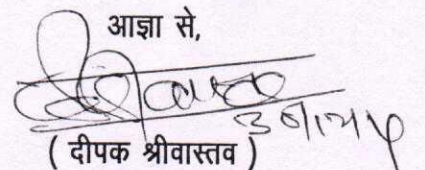 आज्ञा से,
( दीपक श्रीवास्तव )